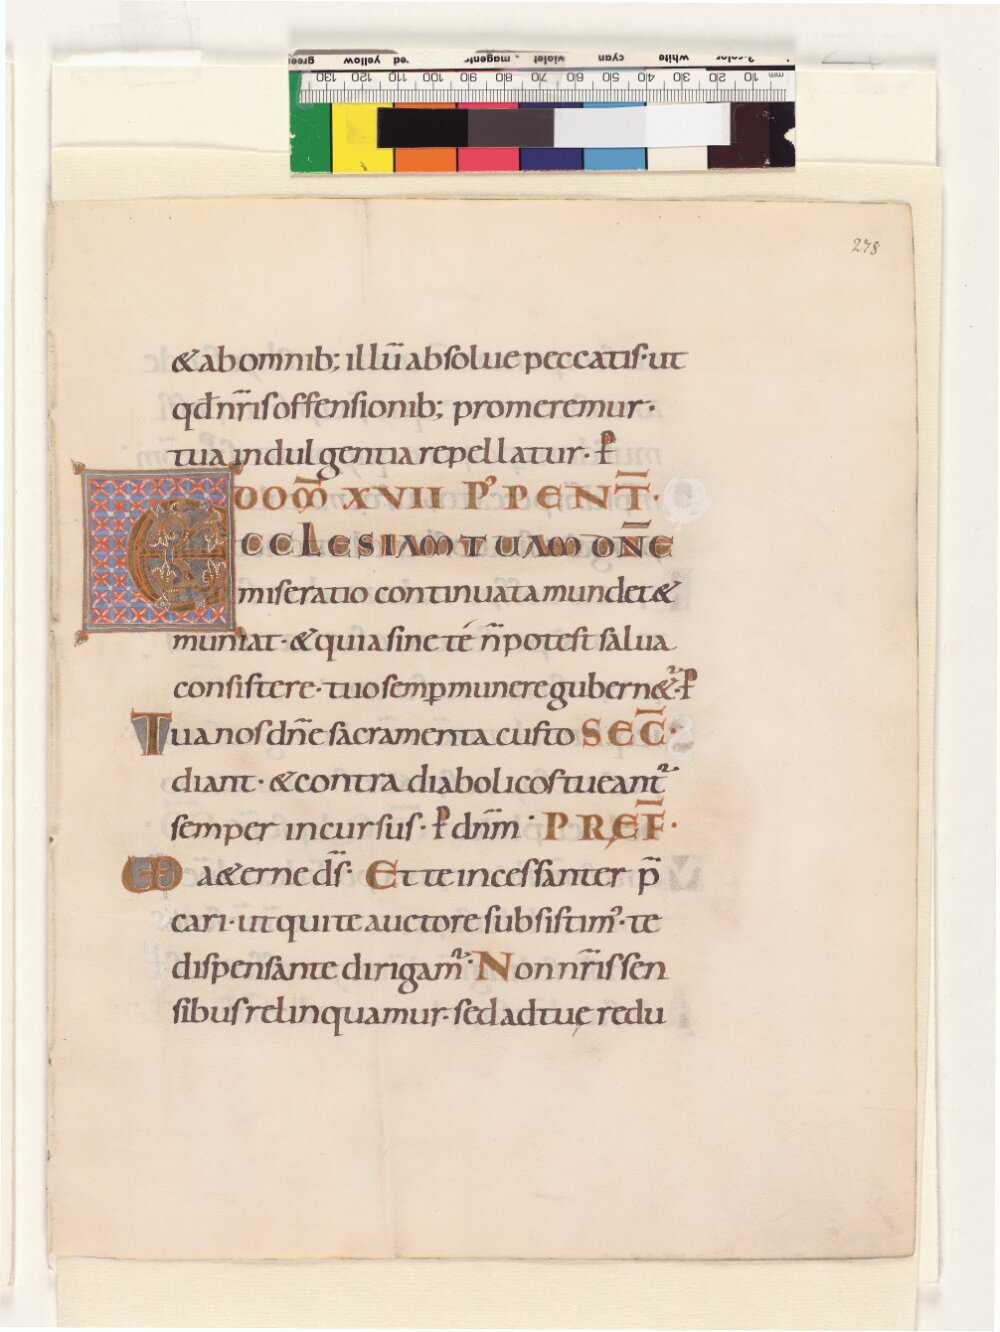 278
& ab omnib; illū absolue peccatis· ut
qd̄ nr̄is offensionib; promeremur·
tua indulgentia repellatur· P̄
DOM̄ XVII P' PENT̄·
ECCLESIAM TUAM DN̄E
miseratio continuata mundet &
muniat· & quia sine té n̄ potest salua
consistere· tuo semp munere gubern&ur· P̄
Tua nos dn̄e sacramenta custo SEC̄·
diant· & contra diabolicos tueantur
semper incursus· P̄ dnm̄· PREF̄·
UD a&erne ds̄· Et te incessanter p̄
cari· ut qui te auctore subsistim'· te
dispensante dirigam᷑· Non nr̄is sen
sibus relinquamur· sed ad tuę redu